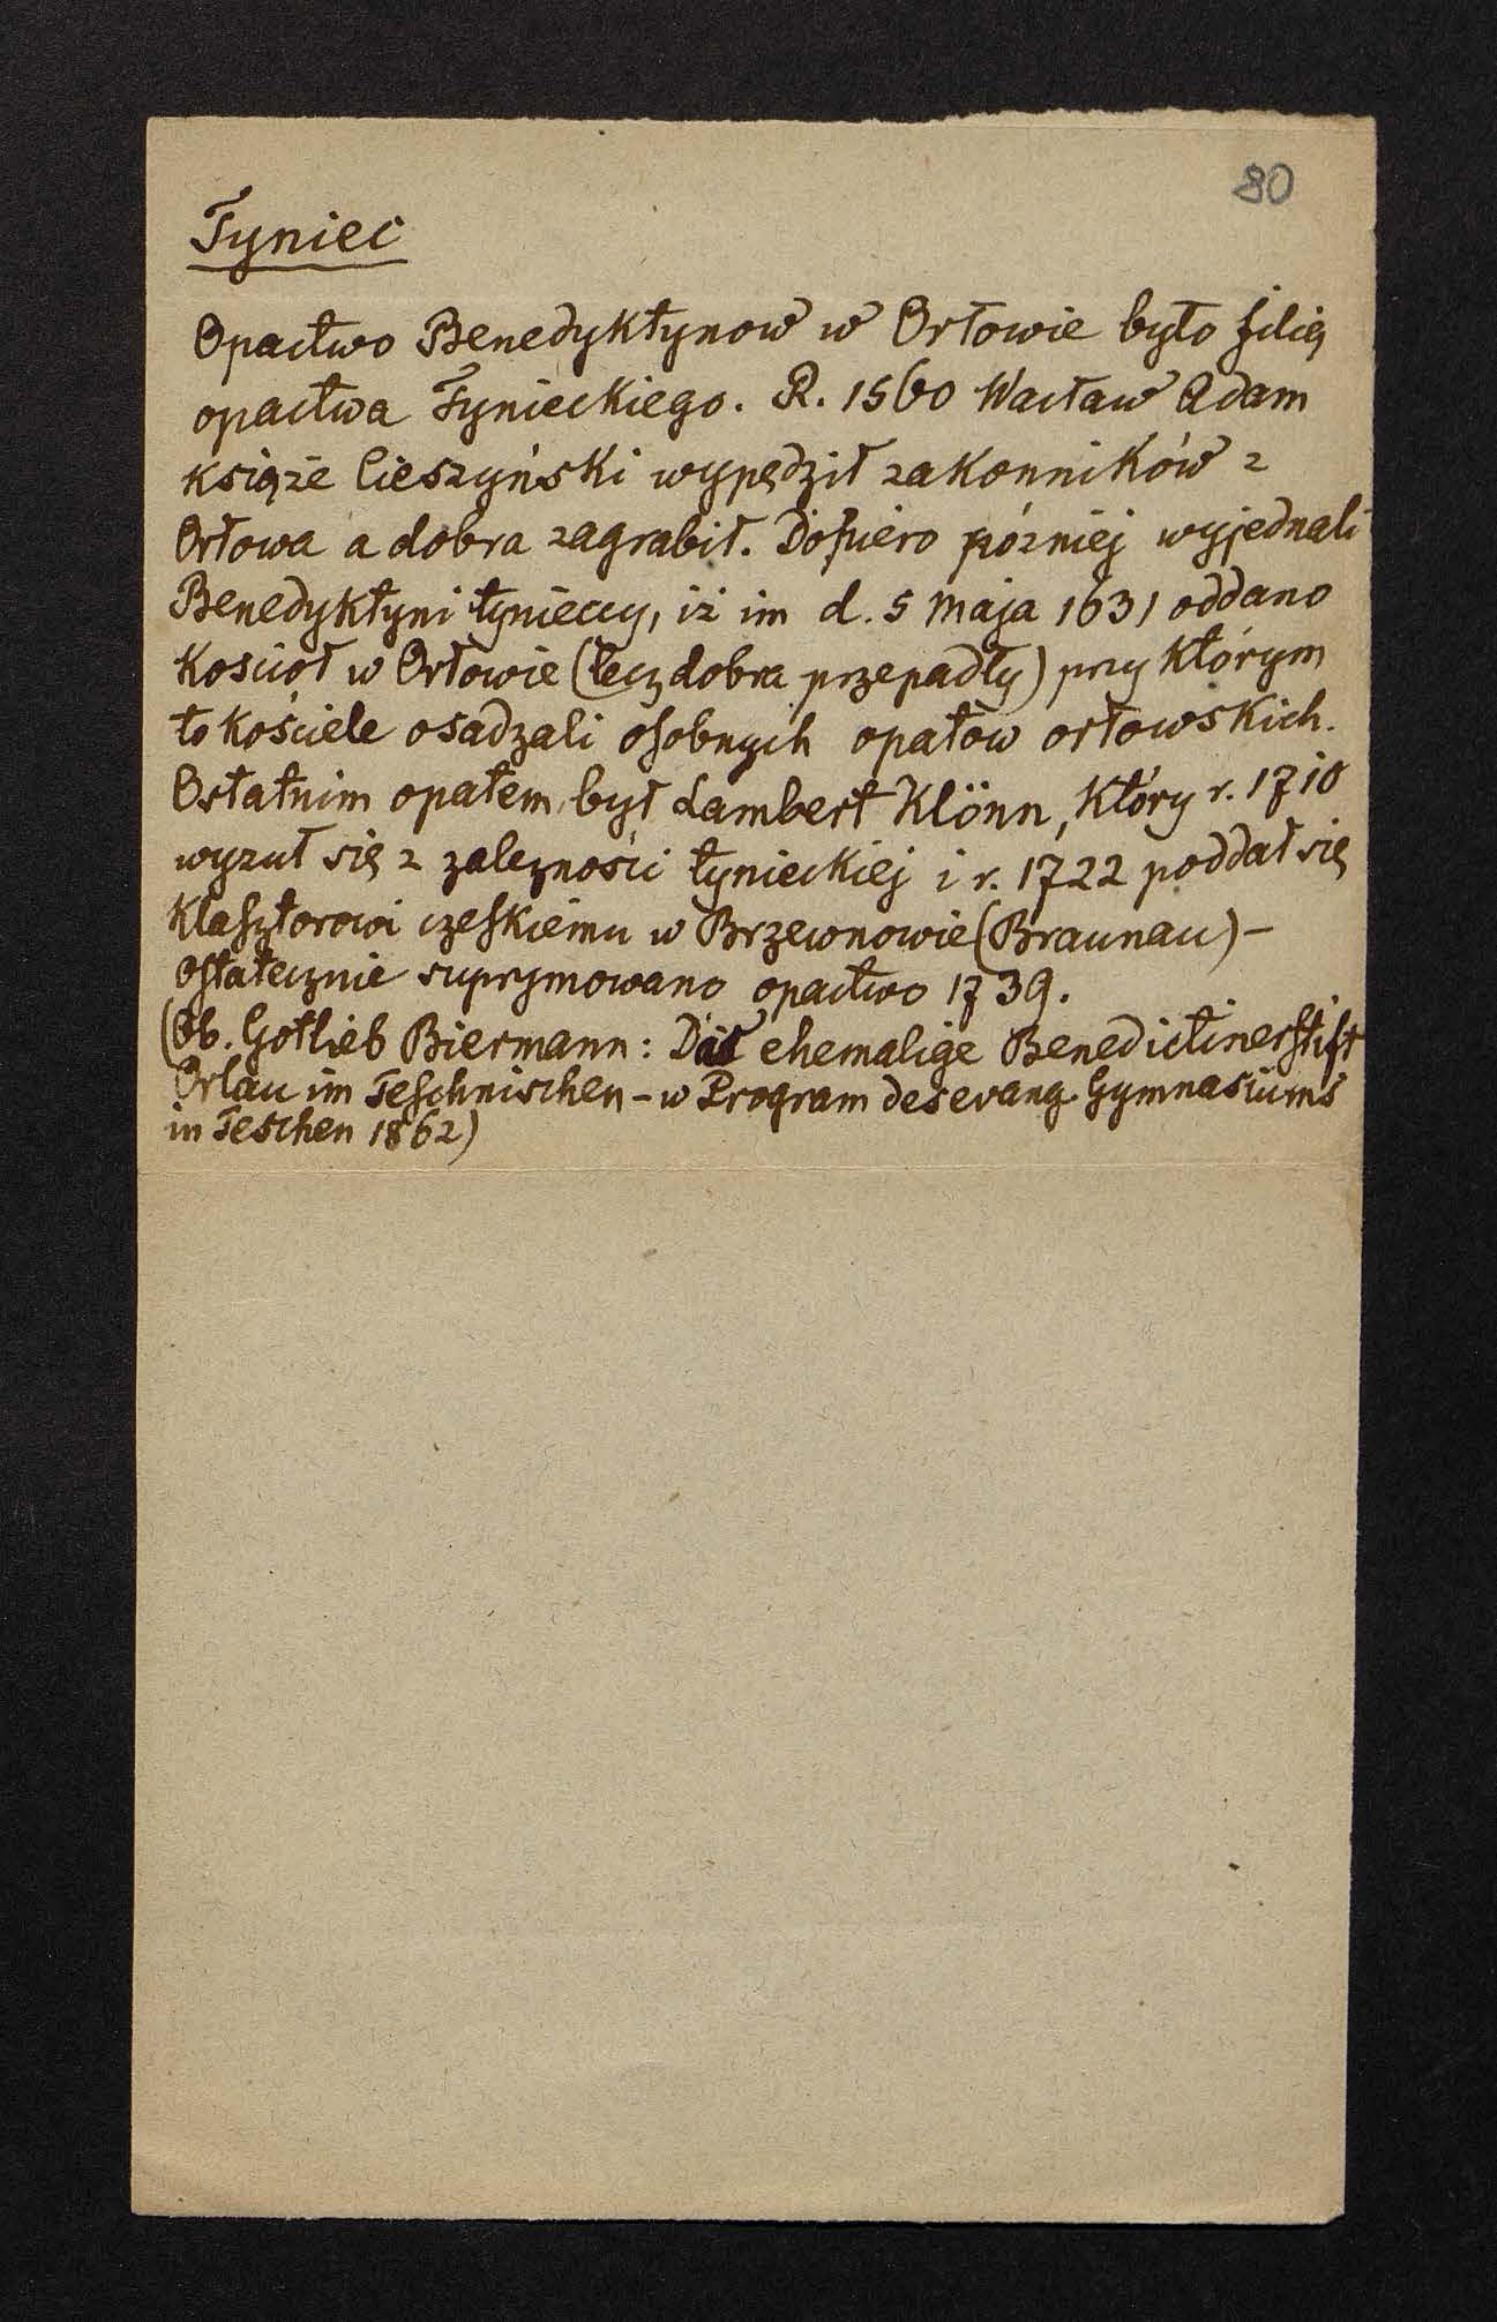 80
Tyniec
Opactwo Benedyktynow w Orłowie było filią
opactwa Tynieckiego. R. 1560 Wacław Adam
książe Cieszyński wypędził zakonników z
Orłowa a dobra zagrabił. Dopiero później wyjednali
Benedyktyni tynieccy, iż im d. 5 maja 1631 oddano
Kosciół w Orłowie (lecz dobra przepadły) przy którym
to kościele osadzali osobnych opatów orłowskich.
Ostatnim opatem był Lambert Klönn, który r. 1710
wyzuł się z zależności tynieckiej i r. 1722 poddał się
Klasztorowi czeskiemu w Brzewnowie (Braunau) –
Ostatecznie suprymowano opactwo 1739.
(Ob. Gotlieb Biermann: Das ehemalige Benedictinerstift
Orlau im Teschnischen – w Program des evang. Gymnasiums
in Teschen 1862)